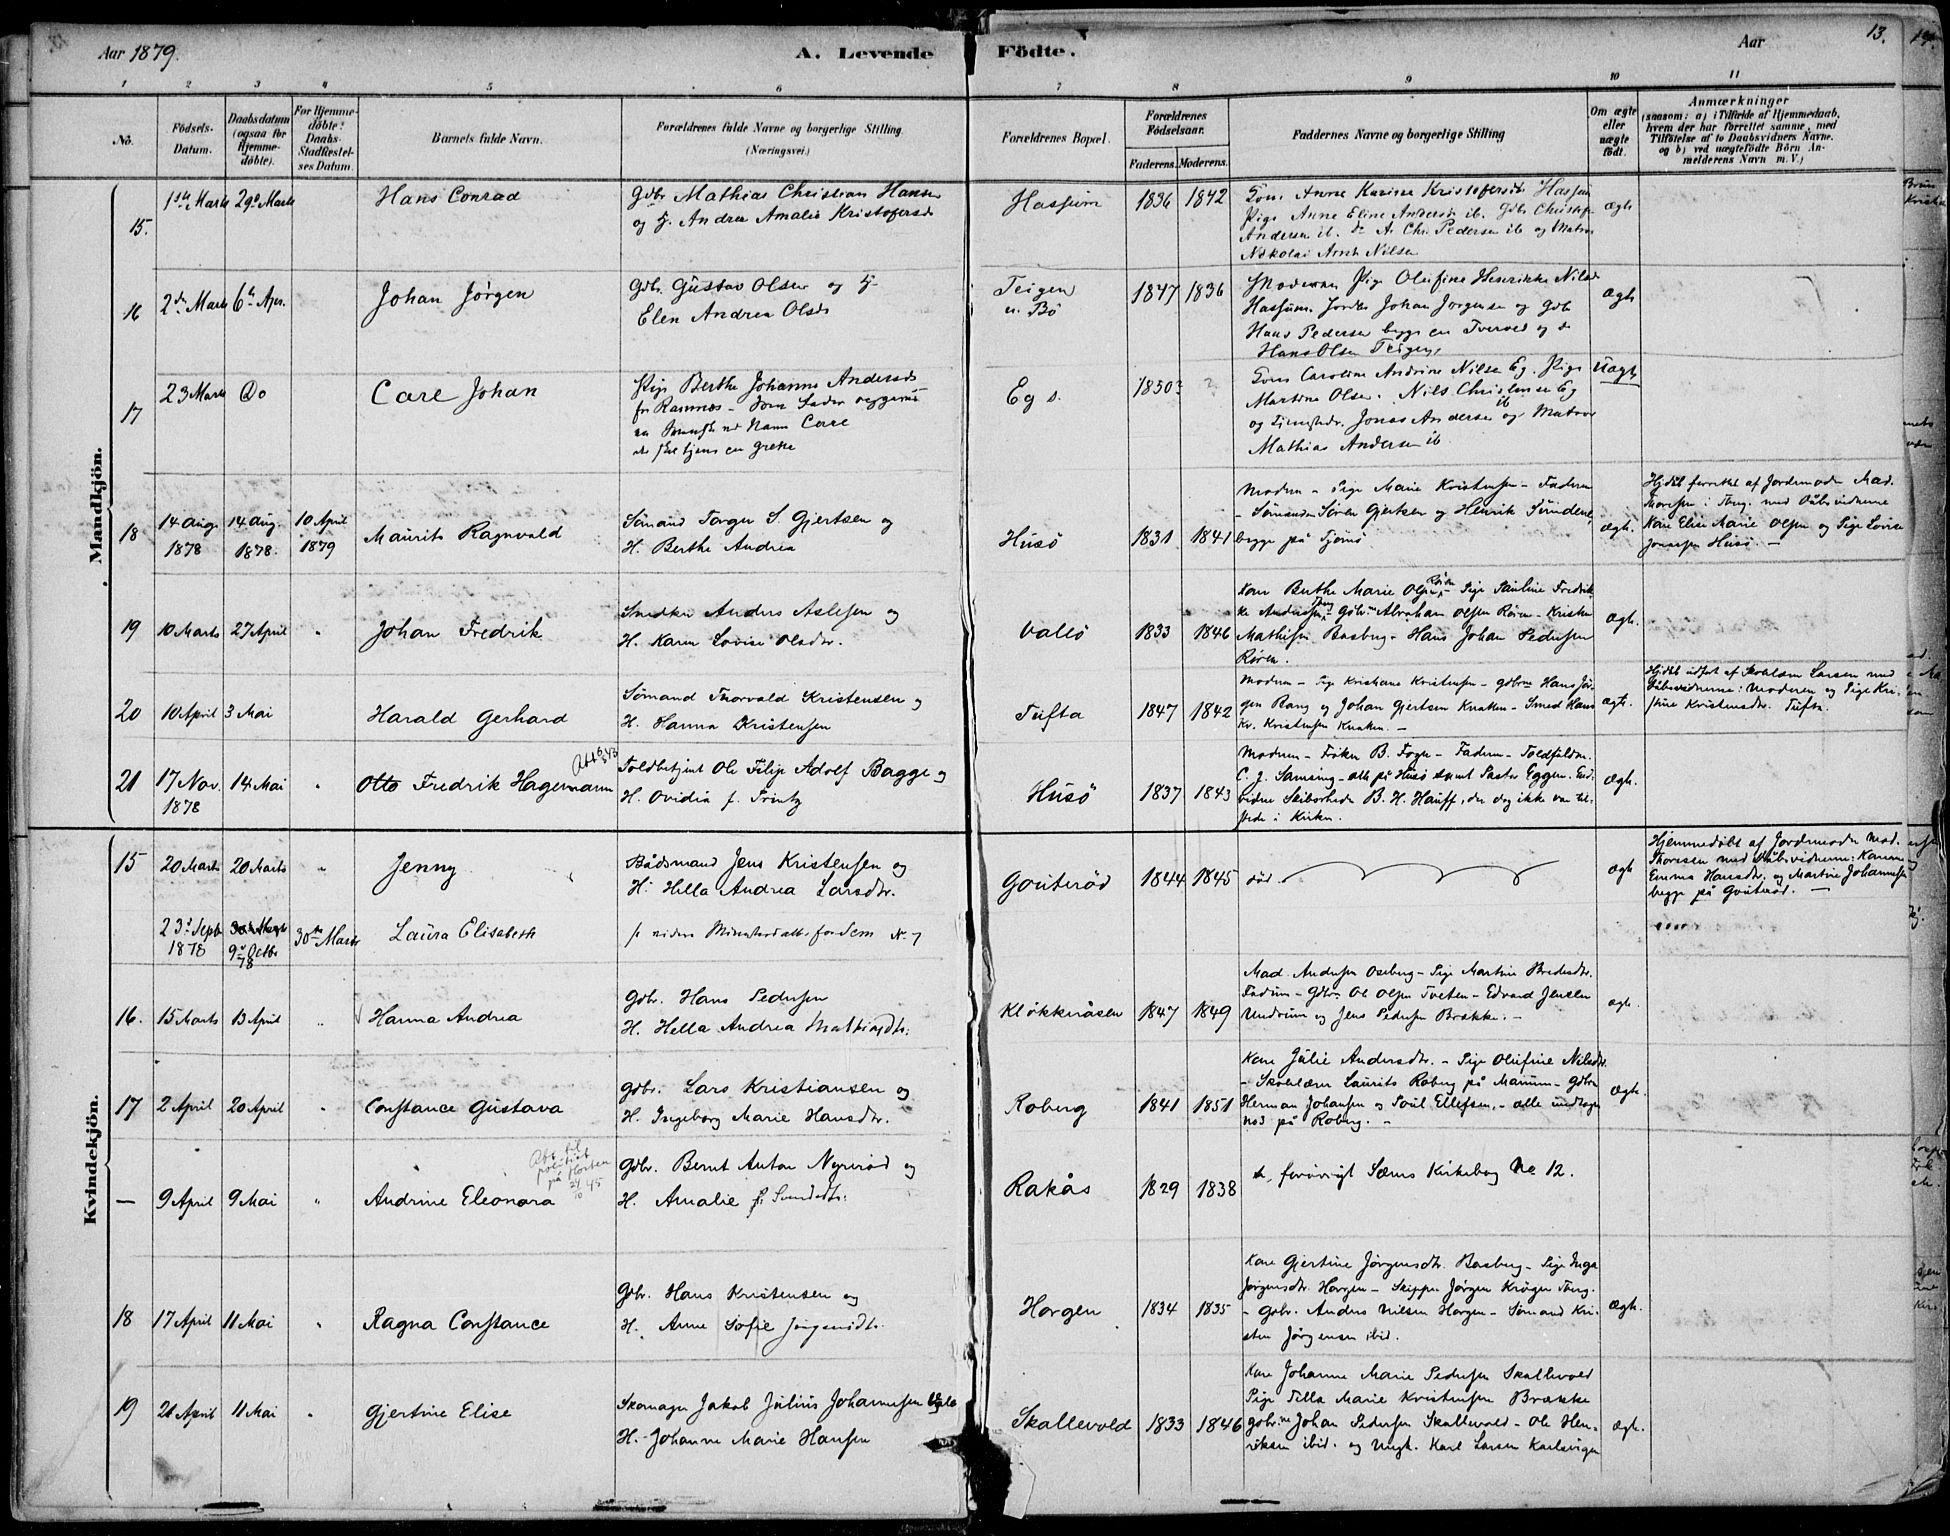 Aar 1879.
A. Levende Födte.
Aar
13.
1 2 3 4 5 6 7 8 9 10 11
No.
Födsels-Datum.
Daabsdatum (ogsaa for Hjemme-döbte).
For Hjemme-döbte: Daabs-Stadfæstel-ses Datum.
Barnets fulde Navn.
Forældrenes fulde Navne og borgerlige Stilling (Næringsvei.)
Forældrenes Bopæl.
Forældrenes Födselsaar.
Faderens. Moderens.
Faddernes Navne og borgerlige Stilling
Om ægte eller uægte födt.
Anmærkninger
(saasom: a) i Tilfælde af Hjemmedaab,
hvem der har forrettet samme, med
Tilföielse af to Daabsvidners Navne.
og b) ved uægtefödte Börn An-
melderens Navn m. V.)
Mandkjön.
15. Hans Conrad
Gbr Mathias Christian Hansen
og H. Andrea Amalie Kristofersdr
Hassum 1836 1842
Kone Anne Karine Kristofersdr Hassum
Pige Anne Eline Andersdr ib. Gbr Christof
Andersen ib. do A. Chr. Pedersen ib og Matros
Nikolai Arnt Nilsen
ægte
16 2den Marts 6te Apr. Johan Jörgen
Gbr. Gustav Olsen og H.
Elen Andrea Olsdr
Teigen u. Bö 1847 1836
Moderen Pige Olufine Henrikke Nilsdr
Hassum. Johan Jörgensen og Gbr
Hans Pedersen begge Tverved og
Hans Olsen Teigen
ægte
17 23 Marts Do Carl Johan
Pige Berthe Johanne Andersdr
fra Ramnes
Eg s. 1850? ?
Kone Caroline Andrine Nilsen Eg. Pige
Martine Olsen. Nils Christensen Eg
og Jonas Andersen ib og Matros
Mathias Andersen ib.
uægte
18 14 Aug. 1878 14 Aug. 1878. 10 April 1879 Maurits Ragnvald
Sömand Torger S. Gjertsen og
H. Berthe Andrea
Husö 1831 1841
Modern – Pige Marie Kristensen – Fadern
– Sömanden Sören Gjertsen og Henrik Sundene,
begge på Tjömö
ægte.
Hjdöbt forrettet af Jordemoder Mad.
Thoresen i Tbrg. med Dåbsvidnerne
Kone Elise Marie Olsen og Pige Lovise
Jonassen Husö. –
19 10 Marts 27 April " Johan Fredrik
Smedken Anders Aslesen og
H. Karen Lovise Olsdr.
Vallö 1833 1846
Kone Berthe Marie Olsen Røren – Pige Pauline Fredrik-
ke Andersen Tbrg – Gbr. Abraham Olsen Røren – Kristen
Mathisen Basberg – Hans Johan Pedersen
Røren.
ægte.
20 10 April 3 Mai Harald Gerhard
Sömand Thorvald Kristensen og
H. Hanna Kristensen
Tufta 1847 1842
Modern – Pige Kristiane Kristensen – Gbrne Hans Jör-
gen Rang og Johan Gjertsen Knaken – Smed Hans
Kr. Kristensen Knaken. –
ægte.
Hjdöbt udfört af Skolelærer Larsen med
Dåbsvidnerne: Moderen og Pige Kri-
stine Kristensdr. Tufta.
21 17 Nov. 1878 14 Mai " Otto Fredrik Hagemann
Toldbetjent Ole Filip Adolf Bagge og
H. Ovidia f. Printz
Husö 1837 1843
Modern – Fröken B. Foyn – Fadern – Toldfuldm.
C. J. Samsing – alle på Husö samt Pastor Eggen. End-
videre Skibsreder B. H. Hauff, der dog ikke var til-
stede i Kirken.
ægte.
Kvindekjön.
15 20 Marts 20 Marts " Jenny
Bådsmand Jens Kristensen og
H. Hella Andrea Larsdtr.
Gouteröd 1844 1845 död.
ægte
Hjemmedöbt af Jordemoder Mad.
Thoresen med Dåbsvidnerne: Karen
Emma Hansdtr. og Martine Johannesen
begge på Gouteröd. –
23de Septbr 1878 9de Octbr 78 30te Marts Laura Elisabeth
for Sem No 7
16. 15 Marts 13 April " Hanna Andrea
Gbr. Hans Pedersen
H. Hella Andrea Mathiasdtr.
Klökkeråsen 1847 1849
Mad. Andersen Oseberg – Pige Martine Bredesdtr.
Fadern – Gbrne Ole Olsen Tveten – Edvard Jensen
Undrum og Jens Pedersen Brekke. –
ægte.
17 2 April 20 April " Constance Gustava
Gbr. Lars Kristiansen og
H. Ingeborg Marie Hansdtr.
Roberg 1841 1851
Kone Julie Andersdtr. – Pige Olufine Nilsdtr.
– Skolelærer Laurits Roberg på Manum – Gbrne
Herman Johansen og Poul Ellefsen. – alle undtagen
No3 på Roberg. –
ægte.
— 9 April 9 Mai " Andrine Eleonora
Att. til politiet på Horten 24/10 45
Gbr. Bernt Anton Nyeröd og
H. Amalie f. Svendsdtr.
Rakås 1829 1838
se forövrigt Sæms Kirkebog No 12.
18 17 April 11 Mai " Ragna Constance
Gbr. Hans Kristensen og
H. Anne Sofie Jörgensdtr.
Horgen 1834 1835
Kone Gjertine Jörgensdtr. Basberg – Pige Inga
Jörgensdtr. Horgen – Skipper Jörgen Kröger Tbrg.
– Gbr. Anders Nilsen Horgen – Sömand Kri-
sten Jörgensen ibid.
ægte.
19 21 April 11 Mai " Gjertine Elise
Skomager Jakob Julius Johannesen og
H. Johanne Marie Hansen
Skallevold 1833 1846
Kone Johanne Marie Pedersen Skallevold
Pige Tilla Marie Kristensen Brække
Gbrne Johan Pedersen Skallevold – Ole Hen-
riksen ibid. og Ungk. Karl Larsen Karlsvigen
ægte.